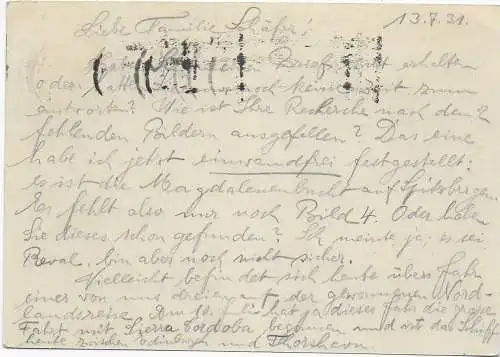 13.7.31.
Liebe Familie Schäfer!
Haben Sie meinen Brief nicht erhalten
oder hatten Sie nur noch keine Zeit zum
antworten? Wie ist Ihre Recherche nach den 2
fehlenden Bildern ausgefallen? Das eine
habe ich jetzt einwandfrei festgestellt:
Es ist die Magdalenenbucht auf Spitzbergen.
Es fehlt also nur noch Bild 4. Oder haben
Sie dieses schon gefunden? Ich meinte ja, es sei
Reval, bin aber noch nicht sicher.
Vielleicht befindet sich heute übers Jahr
einer von uns dreien auf der gewonnenen Nord-
landsreise. Am 10. Juli hat ja dieses Jahr die große
Fahrt mit Sierra Cordoba begonnen und ist das Schiff
heute zwischen Edinburgh und Thorshavn.